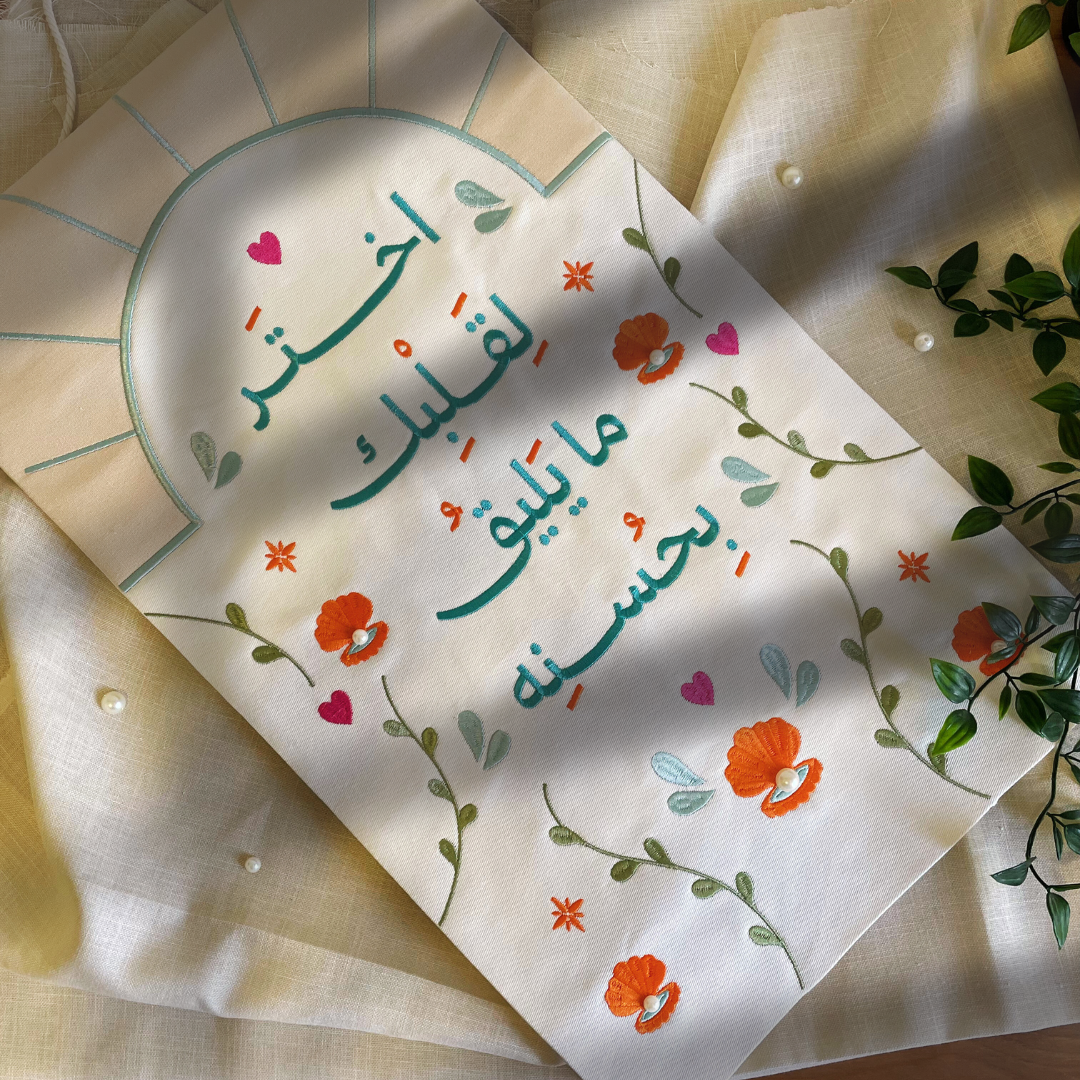 اختَر
لِقَلْبِك
ما يَليقُ
بِحُسنِه